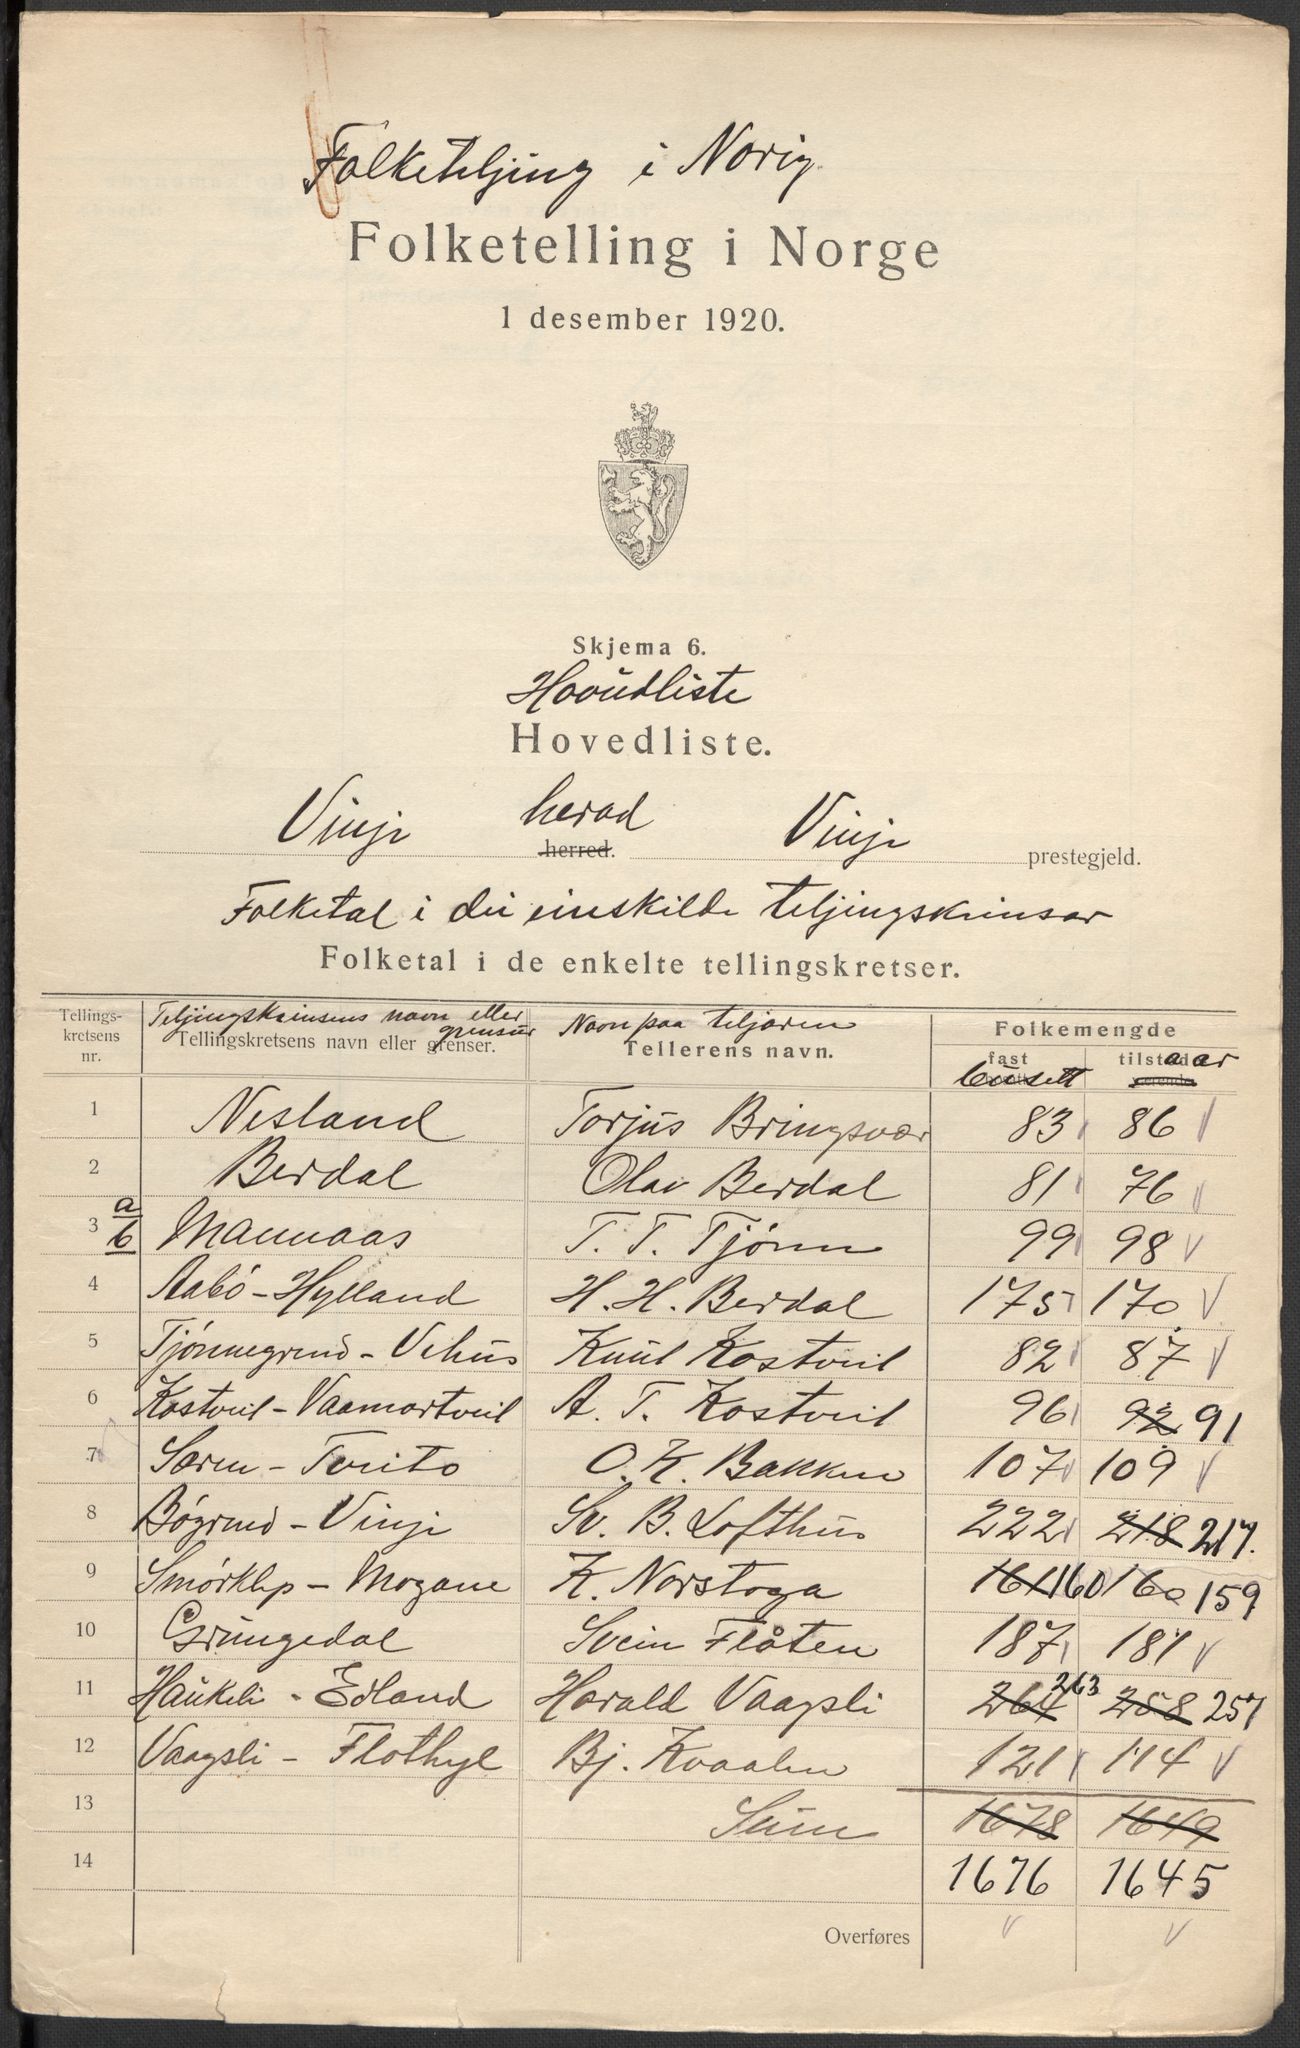 Folketeljing i Norig.
Folketelling i Norge
1 desember 1920.
Skjema 6.
Hovudliste
Hovedliste.
Vinje herad Vinje
herred. prestegjeld.
Folketal i dei einskilde teljingskrinsar
Folketal i de enkelte tellingskretser.
Tellings-kretsens nr. Teljingskrinsens navn eller grensur Tellingskretsens navn eller grenser. Navn paa teljaren Tellerens navn. Folkemengde
fast busett tilstedaar
1 Nesland Torjus Bringsvær 83 86
2 Berdal Olav Berdal 81 76
3 a/b Mannaas T. T. Tjønn 99 98
4 Aabø - Hylland H. H. Berdal 175 170
5 Tjønnegrend - Vehus Knut Kostveit 82 87
6 Kostveit - Vaamartveit A. T. Kostveit 96 92 91
7 Særen - Tveito O. K. Bakken 107 109
8 Bøgrend - Vinje Sv. B. Lofthus 222 218 217.
9 Smørklep - Mogane K. Norstoga 161 160 160 159
10 Grungedal Svein Flåten 187 181
11 Haukeli - Edland Harald Vaagsli 264 263 258 257
12 Vaagsli - Flothyl Bj. Kvaalen 121 114
13 Sum 1678 1649
14 1676 1645
Overføres